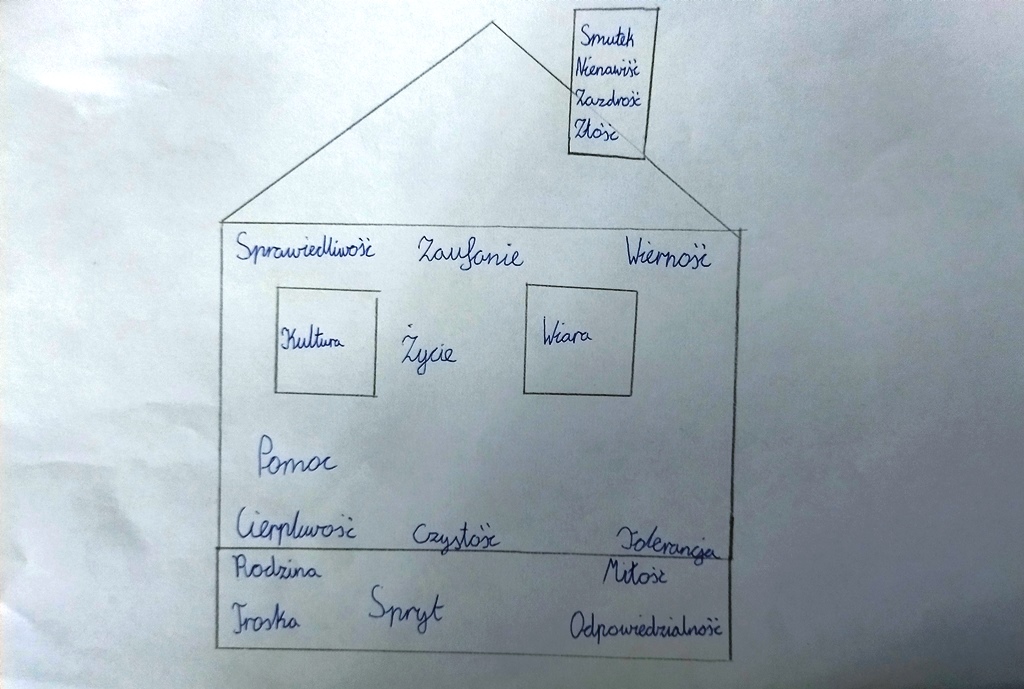 Smutek
Nienawiść
Zazdrość
Złość
Sprawiedliwość Zaufanie Wierność
Kultura Życie Wiara
Pomoc
Cierpliwość Czystość Tolerancja
Rodzina Miłość
Troska Spryt Odpowiedzialność